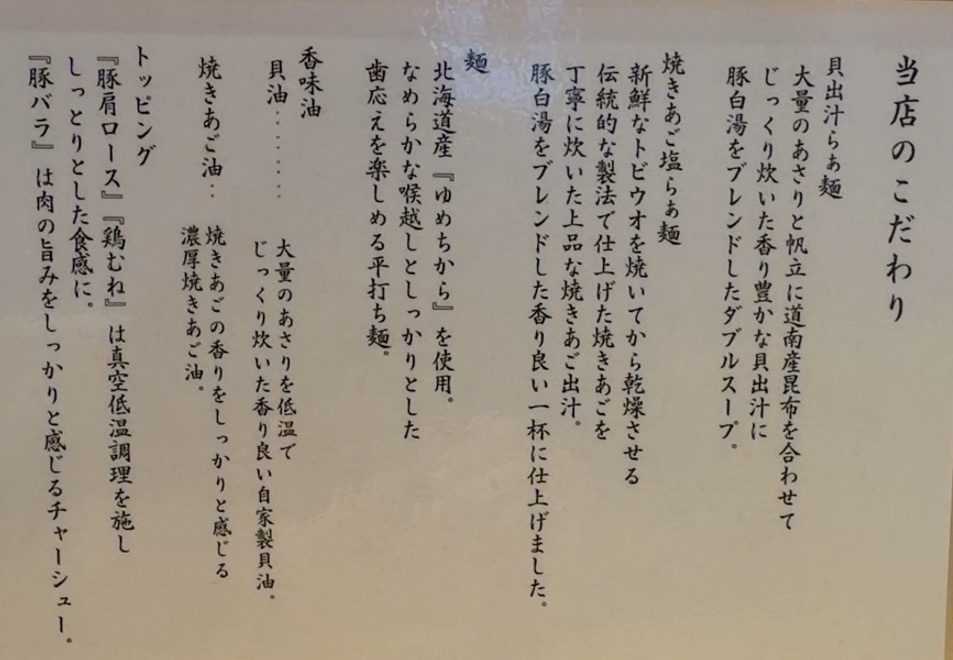 当店のこだわり
貝出汁らぁ麺
大量のあさりと帆立に道南産昆布を合わせて
じっくり炊いた香り豊かな貝出汁に
豚白湯をブレンドしたダブルスープ。
焼きあご塩らぁ麺
新鮮なトビウオを焼いてから乾燥させる
伝統的な製法で仕上げた焼きあごを
丁寧に炊いた上品な焼きあご出汁。
豚白湯をブレンドした香り良い一杯に仕上げました。
麺
北海道産『ゆめちから』を使用。
なめらかな喉越しとしっかりとした
歯応えを楽しめる平打ち麺。
香味油
貝油‥‥‥‥ 大量のあさりを低温で
じっくり炊いた香り良い自家製貝油。
焼きあご油‥ 焼きあごの香りをしっかりと感じる
濃厚焼きあご油。
トッピング
『豚肩ロース』『鶏むね』は真空低温調理を施し
しっとりとした食感に。
『豚バラ』は肉の旨みをしっかりと感じるチャーシュー。